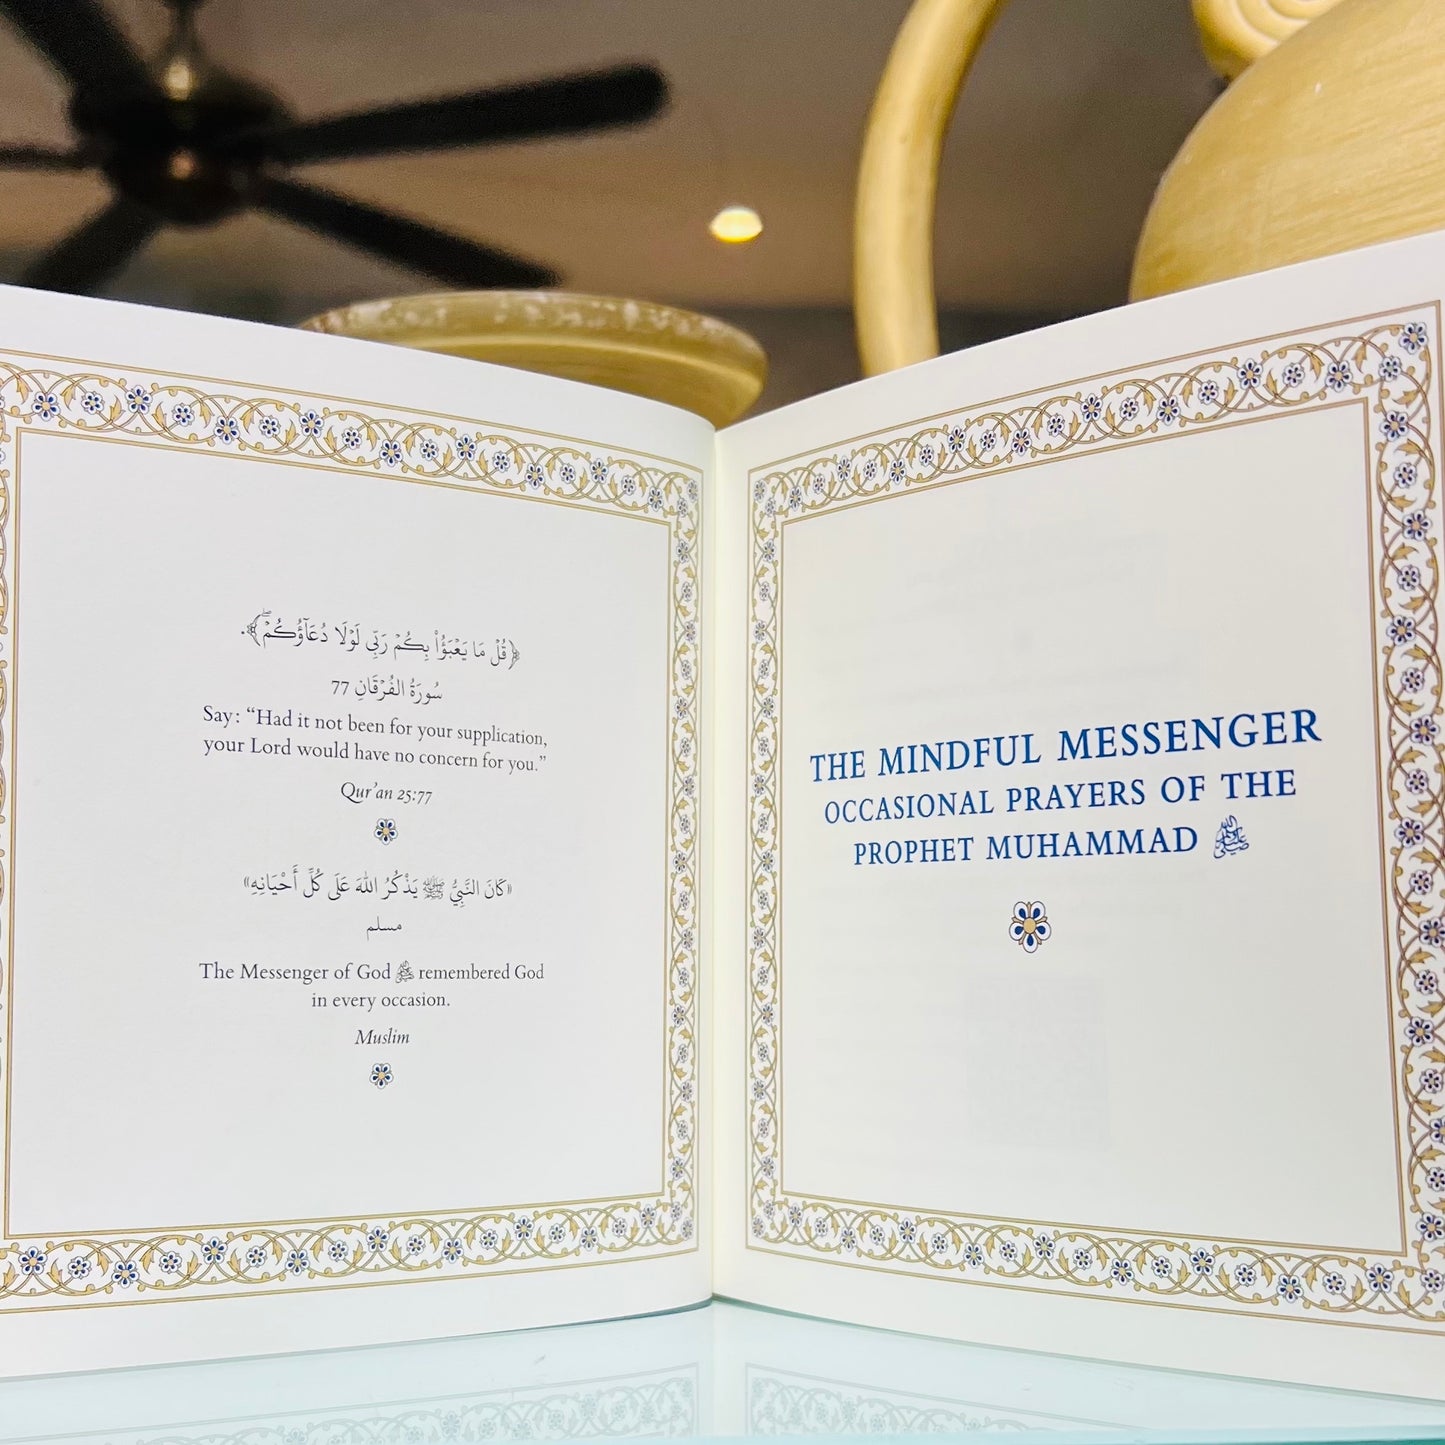 ﴿قُلْ مَا يَعْبَؤُا۟ بِكُمْ رَبِّى لَوْلَا دُعَآؤُكُمْ ۖ﴾.
سُورَةُ الفُرْقَانِ 77
Say: “Had it not been for your supplication,
your Lord would have no concern for you.”
Qur’an 25:77
«كَانَ النَّبِيُّ ﷺ يَذْكُرُ اللهَ عَلَى كُلِّ أَحْيَانِهِ»
مسلم
The Messenger of God ﷺ remembered God
in every occasion.
Muslim
THE MINDFUL MESSENGER
OCCASIONAL PRAYERS OF THE
PROPHET MUHAMMAD ﷺ